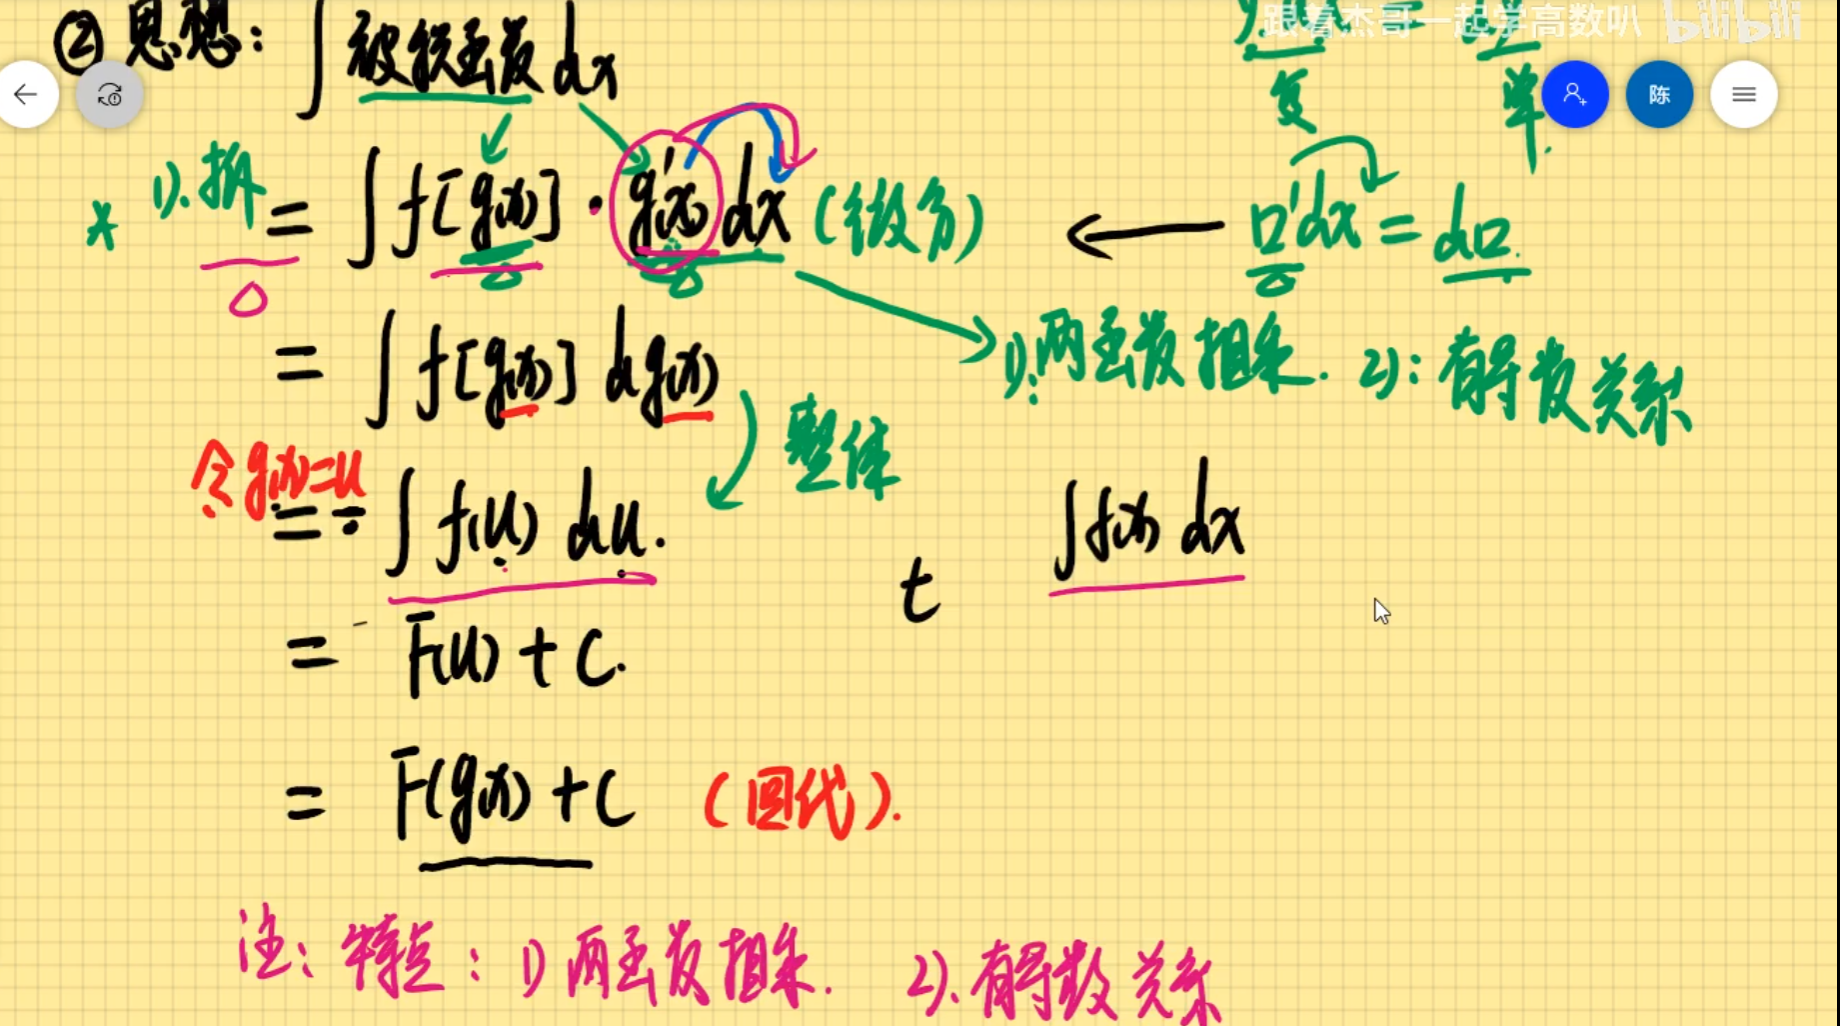 跟着杰哥一起学高数叭 bilibili
② 思想: ∫ 被积函数 dx
复 单.
陈
* 1). 拆 = ∫ f[g(x)] · g'(x) dx (微分) ← □'dx = d□.
= ∫ f[g(x)] dg(x)
1): 两函数相乘. 2): 有导数关系
整体
令g(x)=u
= ∫ f(u) du.
∫f(x) dx
t
= F(u) + C.
= F(g(x)) + C (回代).
注: 特点: 1) 两函数相乘. 2). 有导数关系